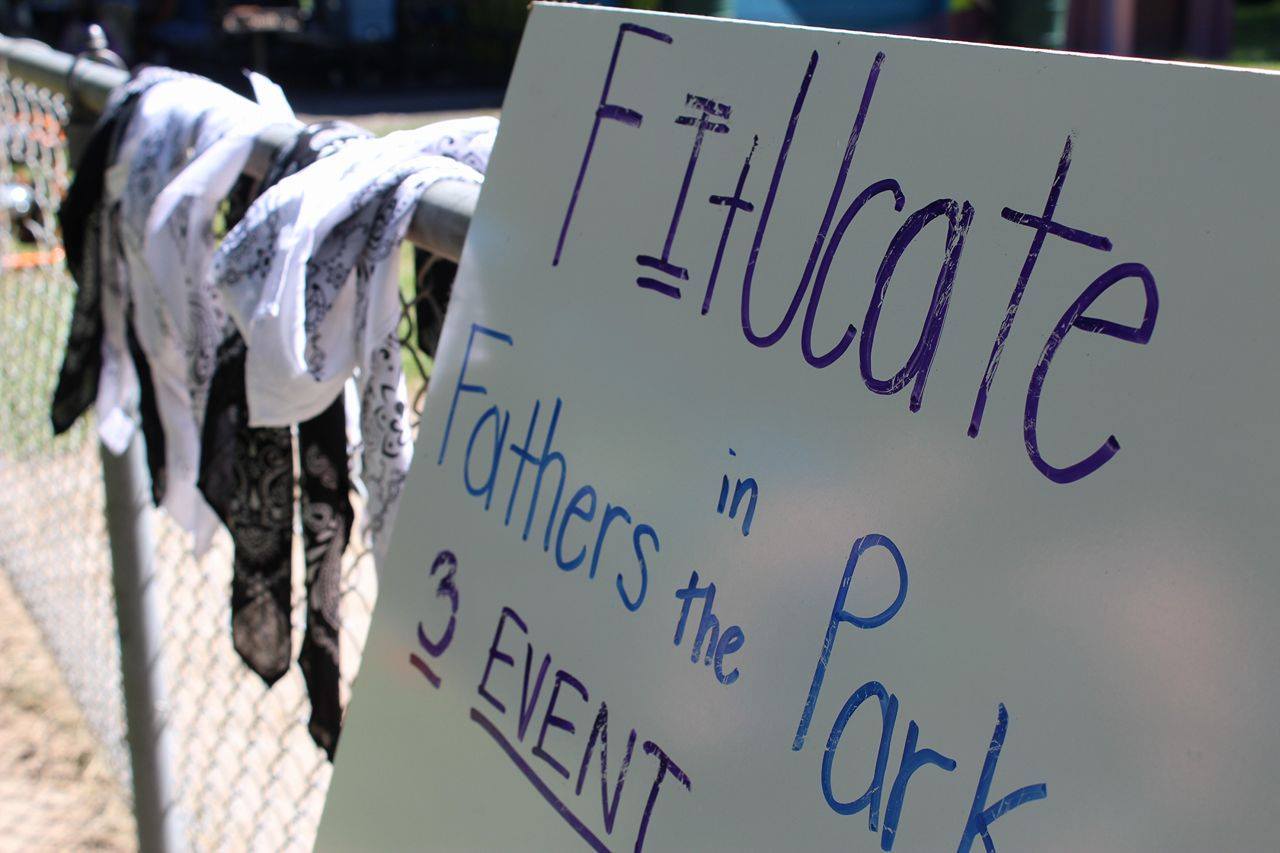 FItUcate
Fathers in the Park
3 EVENT